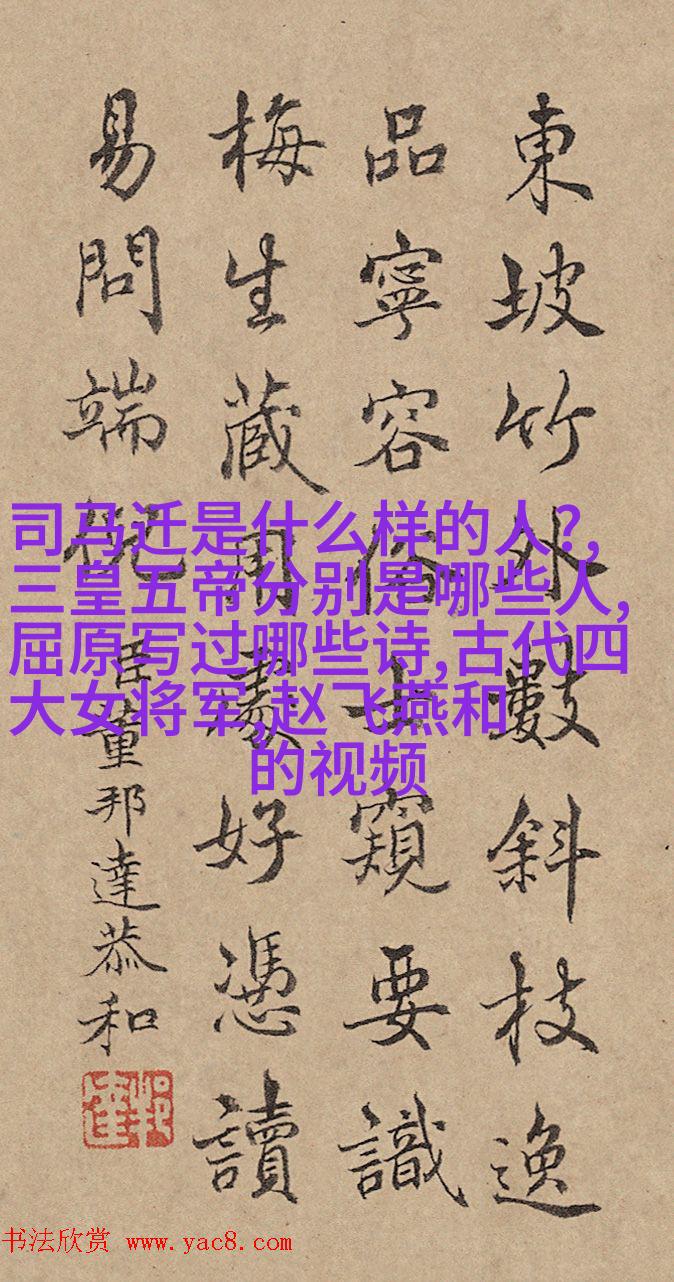 東坡竹外數斜枝逸
品寧容俗士窺要識
梅生藏用處好憑讀
易問端倪 臣董邦達恭和
司马迁是什么样的人?,
三皇五帝分别是哪些人,
屈原写过哪些诗,古代四
大女将军,赵飞燕和
的视频
书法欣赏 www.yac8.com